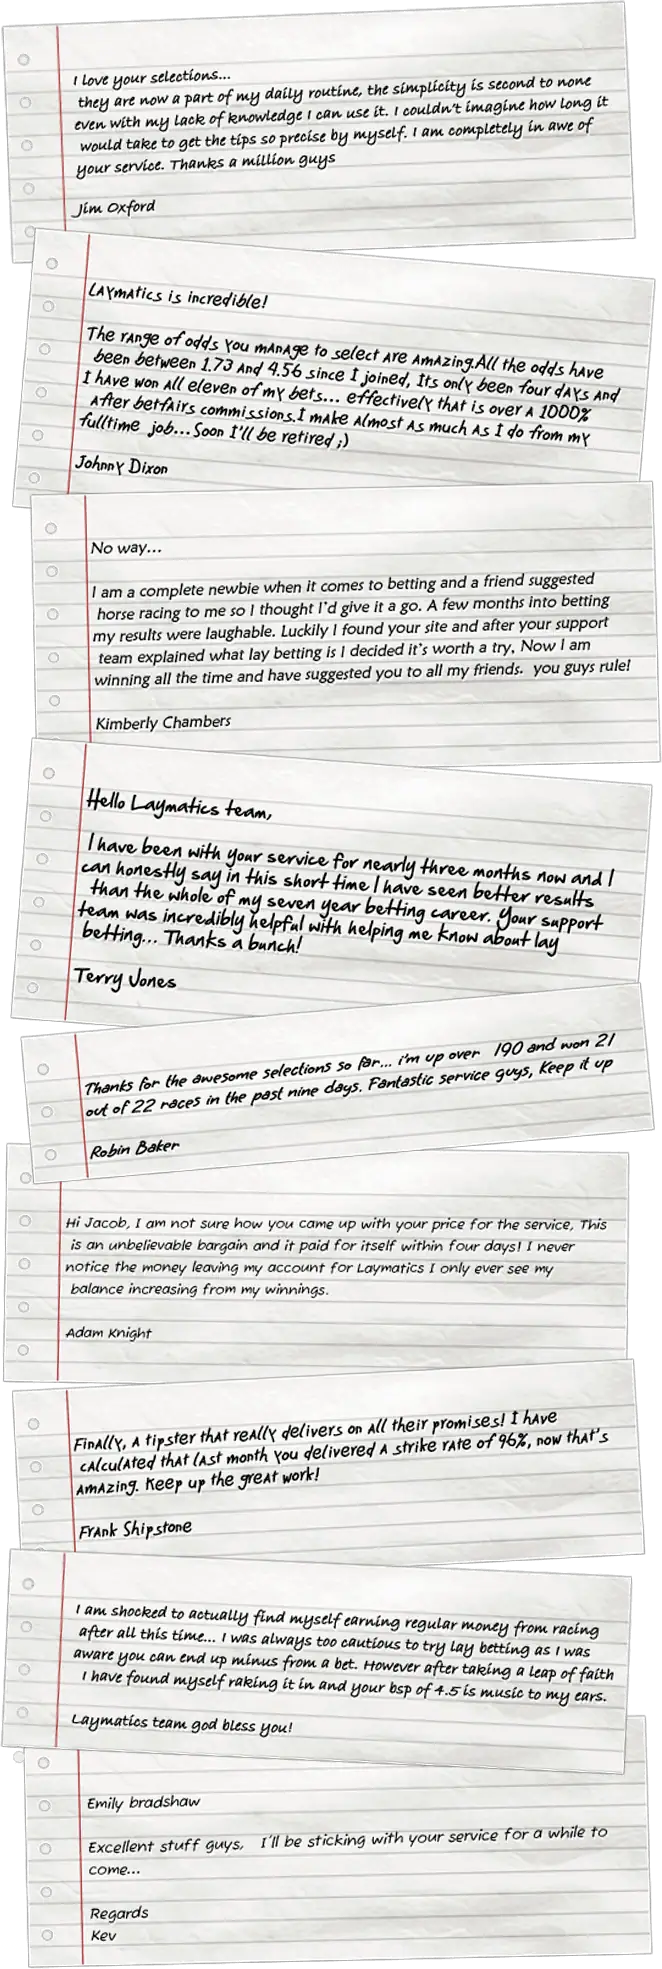 I love your selections...
they are now a part of my daily routine, the simplicity is second to none
even with my lack of knowledge I can use it. I couldn't imagine how long it
would take to get the tips so precise by myself. I am completely in awe of
your service. Thanks a million guys
Jim Oxford
Laymatics is incredible!
The range of odds you manage to select are amazing.All the odds have
been between 1.73 and 4.56 since I joined, Its only been four days and
I have won all eleven of my bets... effectively that is over a 1000%
after betfairs commissions.I make almost as much as I do from my
fulltime job...Soon I'll be retired ;)
Johnny Dixon
No way...
I am a complete newbie when it comes to betting and a friend suggested
horse racing to me so I thought I'd give it a go. A few months into betting
my results were laughable. Luckily I found your site and after your support
team explained what lay betting is I decided it's worth a try, Now I am
winning all the time and have suggested you to all my friends. you guys rule!
Kimberly Chambers
Hello Laymatics team,
I have been with your service for nearly three months now and I
can honestly say in this short time I have seen better results
than the whole of my seven year betting career. Your support
team was incredibly helpful with helping me know about lay
betting... Thanks a bunch!
Terry Jones
Thanks for the awesome selections so far... i'm up over 190 and won 21
out of 22 races in the past nine days. Fantastic service guys, Keep it up
Robin Baker
Hi Jacob, I am not sure how you came up with your price for the service, This
is an unbelievable bargain and it paid for itself within four days! I never
notice the money leaving my account for Laymatics I only ever see my
balance increasing from my winnings.
Adam Knight
Finally, a tipster that really delivers on all their promises! I have
calculated that last month you delivered a strike rate of 96%, now that's
amazing. Keep up the great work!
Frank Shipstone
I am shocked to actually find myself earning regular money from racing
after all this time... I was always too cautious to try lay betting as I was
aware you can end up minus from a bet. However after taking a leap of faith
I have found myself raking it in and your bsp of 4.5 is music to my ears.
Laymatics team god bless you!
Emily bradshaw
Excellent stuff guys, I'll be sticking with your service for a while to
come...
Regards
Kev